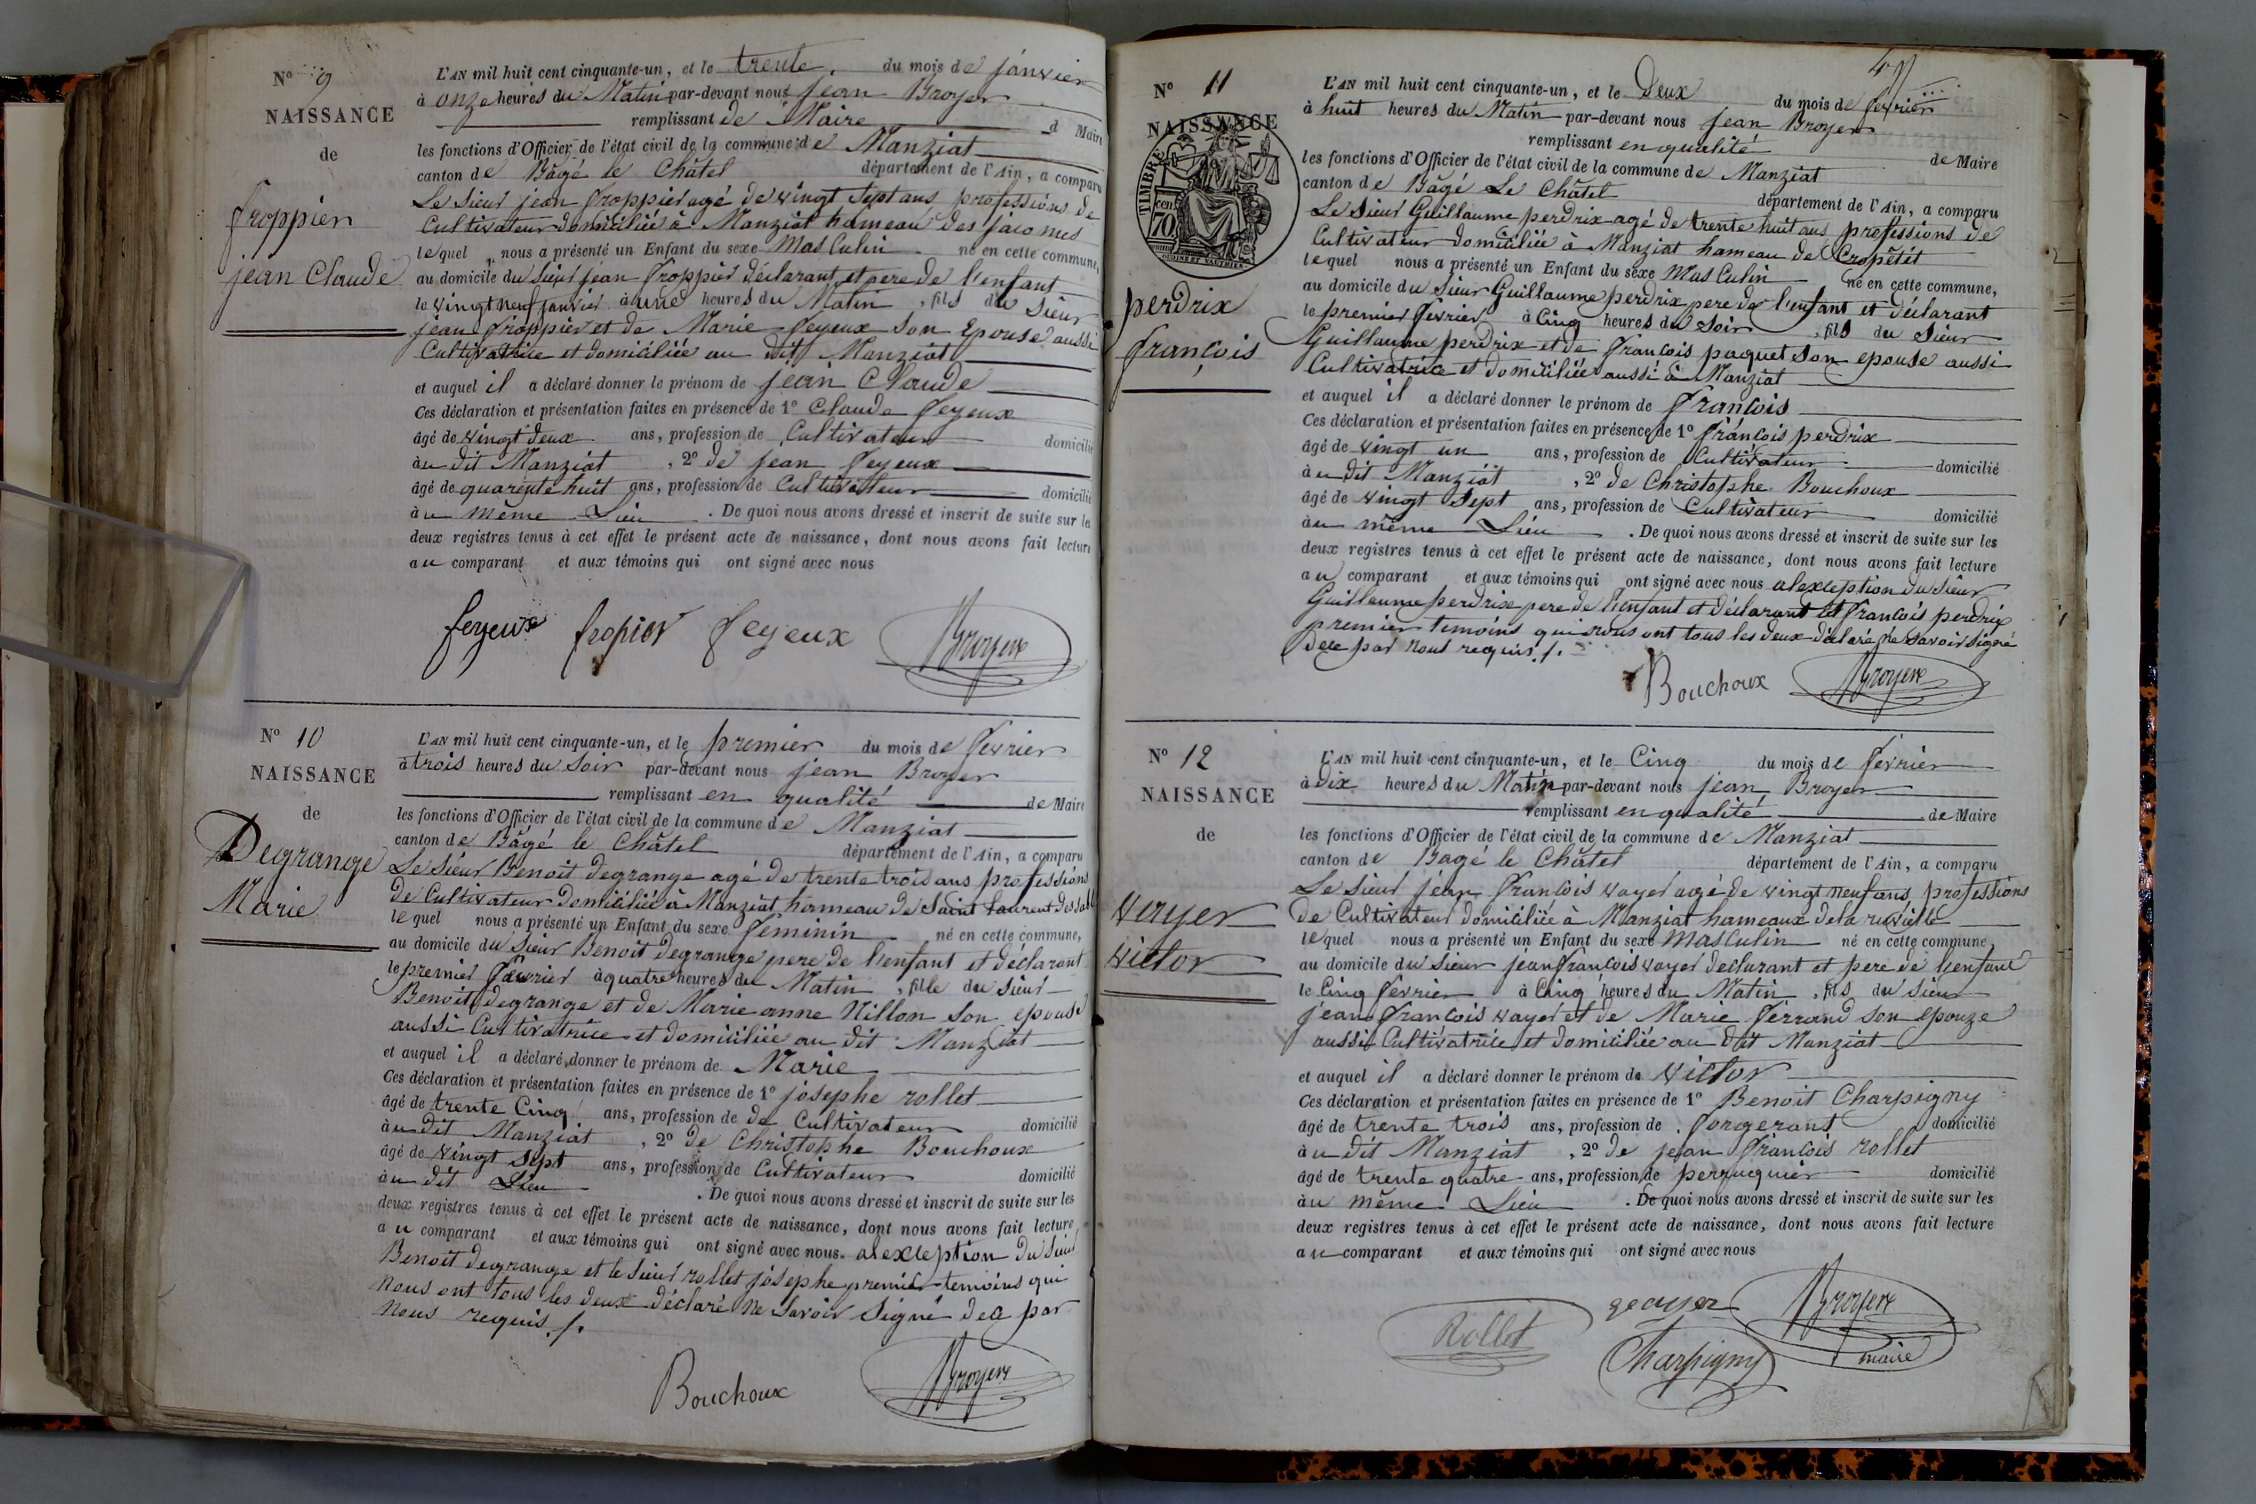 N° 9
NAISSANCE
de
froppier
jean Claude
L'AN mil huit cent cinquante-un, et le trente. du mois de janvier
à onze heures du Matin par-devant nous Jean Broyer
remplissant de Maire d Maire
les fonctions d'Officier de l'état civil de la commune de Manziat
canton de Bâgé le Châtel département de l'Ain, a comparu
Le Sieur jean froppier agé de vingt Sept ans professions de
Cultivateur domiciliée à Manziat hameau des
lequel nous a présenté un Enfant du sexe MasCulin né en cette commune,
au domicile du Sieur Jean froppier déclarant et pere de l'enfant
le vingt neuf janvier à une heures du Matin , fils du Sieur
jean froppier et de Marie feyeux Son Epouse aussi
Cultivatrice et domiciliée au dit Manziat
et auquel il a déclaré donner le prénom de jean Claude
Ces déclaration et présentation faites en présence de 1° Claude feyeux
âgé de vingt deux ans, profession de Cultivateur domicilié
àu dit Manziat , 2° de jean feyeux
âgé de quarente huit ans, profession de Cultivateur domicilié
àu même Lieu . De quoi nous avons dressé et inscrit de suite sur les
deux registres tenus à cet effet le présent acte de naissance, dont nous avons fait lecture
au comparant et aux témoins qui ont signé avec nous
feyeux fropier feyeux Broyer
N° 10
NAISSANCE
de
Degrange
Marie
L'AN mil huit cent cinquante-un, et le premier du mois de fevrier
à trois heures du Soir par-devant nous jean Broyer
remplissant en qualité de Maire
les fonctions d'Officier de l'état civil de la commune de Manziat
canton de Bâgé le Châtel département de l'Ain, a comparu
Le Sieur Benoit degrange agé de trente trois ans professions
de Cultivateur domiciliée à Manziat hameau de Saint Laurent
lequel nous a présenté un Enfant du sexe féminin né en cette commune,
au domicile du Sieur Benoit degrange pere de l'enfant et déclarant
le premier fevrier à quatre heures du Matin , fille du Sieur
Benoit degrange et de Marie anne Nillon Son epouse
aussi Cultivatrice et domiciliée au dit Manziat
et auquel il a déclaré donner le prénom de Marie
Ces déclaration et présentation faites en présence de 1° josephe rollet
âgé de trente Cinq ans, profession de de Cultivateur domicilié
àu dit Manziat , 2° de Christophe Bouchoux
âgé de vingt sept ans, profession de Cultivateur domicilié
àu dit Lieu . De quoi nous avons dressé et inscrit de suite sur les
deux registres tenus à cet effet le présent acte de naissance, dont nous avons fait lecture
au comparant et aux témoins qui ont signé avec nous. alexception du Sieur
Benoit degrange et le Sieur rollet josephe premier temoins qui
nous ont tous les deux déclaré ne Savoir Signé dece par
nous requis ./.
Bouchoux Broyer
N° 11
NAISSANCE
TIMBRE
cent
70
perdrix
francois
L'AN mil huit cent cinquante-un, et le Deux du mois de fevrier
à huit heures du Matin par-devant nous jean Broyer
remplissant en qualité de Maire
les fonctions d'Officier de l'état civil de la commune de Manziat
canton de Bâgé Le Châtel département de l'Ain, a comparu
Le Sieur Guillaume perdrix agé de trente huit ans professions de
Cultivateur domiciliée à Manziat hameau de Cropétét
lequel nous a présenté un Enfant du sexe MasCulin né en cette commune,
au domicile du Sieur Guillaume perdrix pere de l'enfant et déclarant
le premier fevrier à Cinq heures du Soir , fils du Sieur
Guillaume perdrix et de francois paquet son epouse aussi
Cultivatrice et domiciliée aussi à Manziat
et auquel il a déclaré donner le prénom de francois
Ces déclaration et présentation faites en présence de 1° francois perdrix
âgé de vingt un ans, profession de Cultivateur domicilié
àu dit Manziat , 2° de Christophe Bouchoux
âgé de vingt Sept ans, profession de Cultivateur domicilié
àu même Lieu . De quoi nous avons dressé et inscrit de suite sur les
deux registres tenus à cet effet le présent acte de naissance, dont nous avons fait lecture
au comparant et aux témoins qui ont signé avec nous alexception du Sieur
Guillaume perdrix pere de l'enfant et déclarant et francois perdrix
premier temoins qui nous ont tous les deux déclaré ne savoir signé
dece par nous requis ./.
Bouchoux Broyer
N° 12
NAISSANCE
de
voyer
victor
L'AN mil huit cent cinquante-un, et le Cinq du mois de fevrier
à Dix heures du Matin par-devant nous jean Broyer
remplissant en qualité de Maire
les fonctions d'Officier de l'état civil de la commune de Manziat
canton de Bagé le Châtel département de l'Ain, a comparu
Le Sieur jean francois voyer agé de vingt neuf ans professions
de Cultivateur domiciliée à Manziat hameaux de la
lequel nous a présenté un Enfant du sexe masCulin né en cette commune,
au domicile du Sieur jean francois voyer declarant et pere de l'enfant
le Cinq fevrier à Cinq heures du Matin , fils du Sieur
jean francois voyer et de Marie ferrand son epouze
aussi Cultivatrice et domiciliée au dit Manziat
et auquel il a déclaré donner le prénom de victor
Ces déclaration et présentation faites en présence de 1° Benoit Charpigny
âgé de trente trois ans, profession de forgerons domicilié
àu dit Manziat , 2° de jean francois rollet
âgé de trente quatre ans, profession de perruquier domicilié
àu même Lieu . De quoi nous avons dressé et inscrit de suite sur les
deux registres tenus à cet effet le présent acte de naissance, dont nous avons fait lecture
au comparant et aux témoins qui ont signé avec nous
Rollet Broyer
Charpigny maire